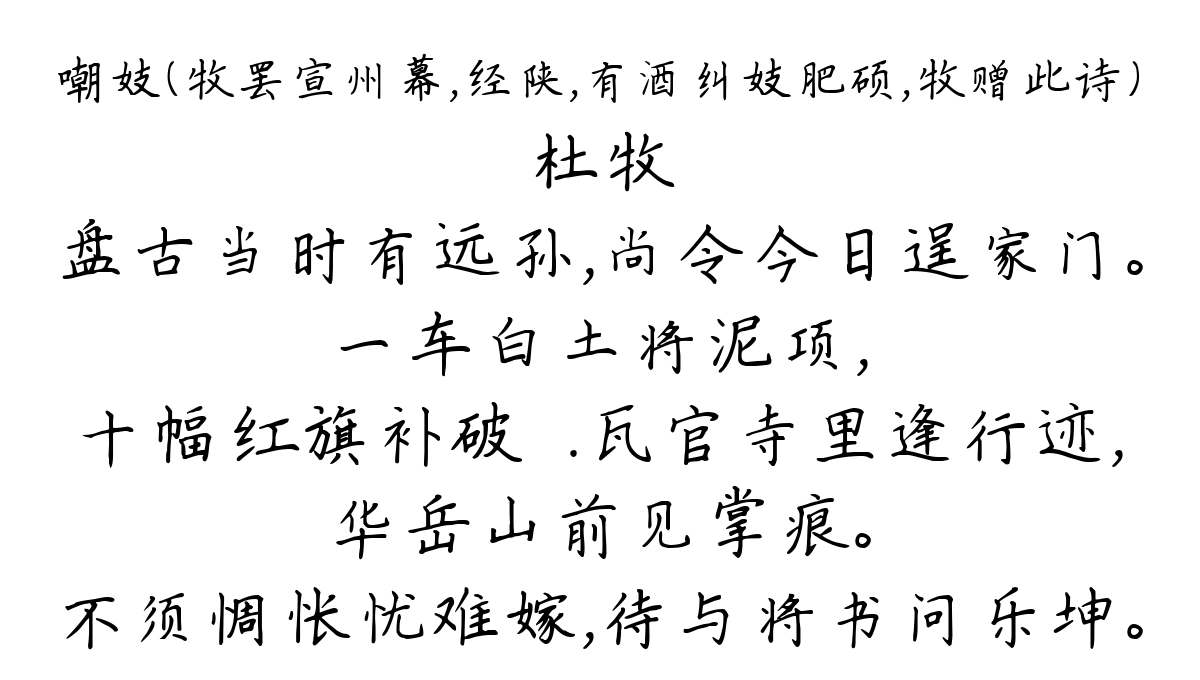 嘲妓(牧罢宣州幕,经陕,有酒纠妓肥硕,牧赠此诗)
杜牧
盘古当时有远孙,尚令今日逞家门。
一车白土将泥项,
十幅红旗补破 .瓦官寺里逢行迹,
华岳山前见掌痕。
不须惆怅忧难嫁,待与将书问乐坤。